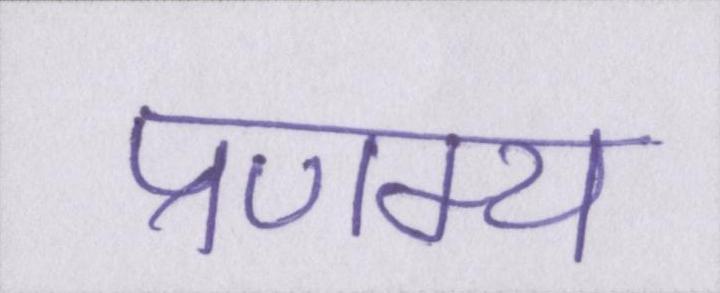 प्रणम्य